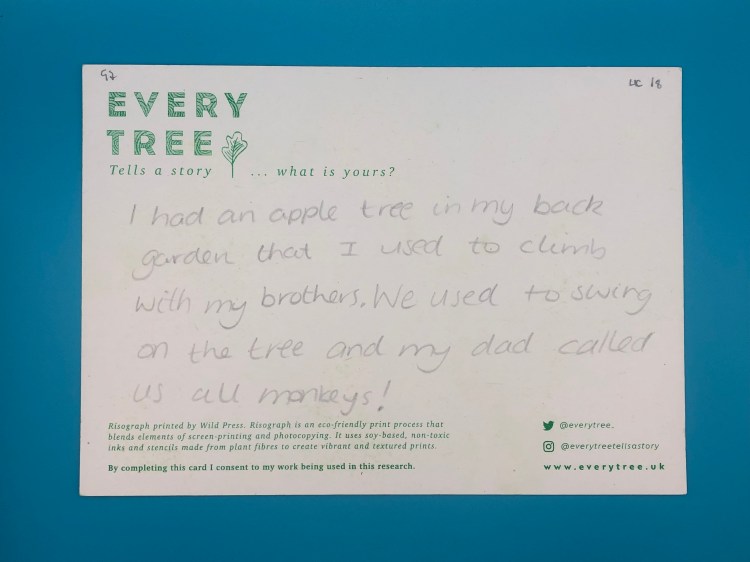 97
UC 18
EVERY
TREE
Tells a story ... what is yours?
I had an apple tree in my back
garden that I used to climb
with my brothers. We used to swing
on the tree and my dad called
us all monkeys!
Risograph printed by Wild Press. Risograph is an eco-friendly print process that
blends elements of screen-printing and photocopying. It uses soy-based, non-toxic
inks and stencils made from plant fibres to create vibrant and textured prints.
By completing this card I consent to my work being used in this research.
@everytree_
@everytreetellsastory
www.everytree.uk